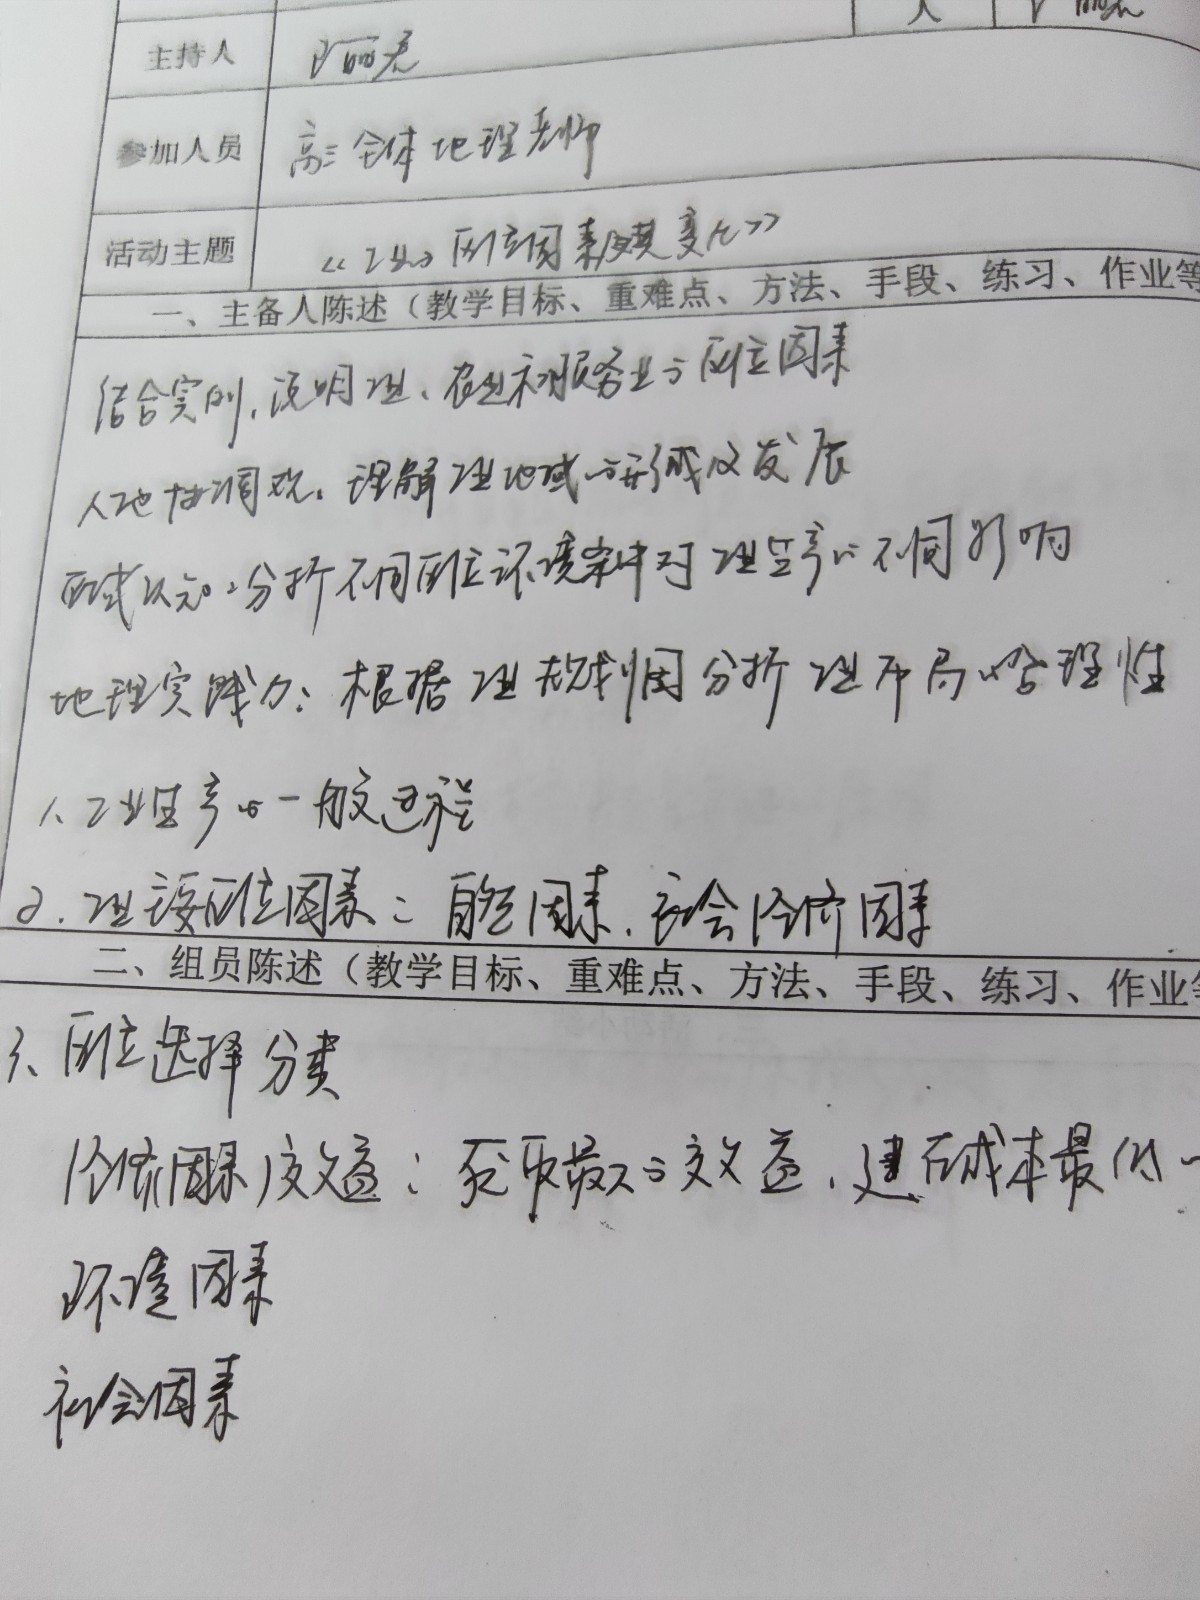 人
主持人
参加人员 高三全体地理老师
活动主题 《工业的区位因素及其变化》
一、主备人陈述（教学目标、重难点、方法、手段、练习、作业等
结合实例,说明工业、农业和服务业的区位因素
人地协调观：理解工业地域的形成及发展
区域认知：分析不同区位环境条件对工业生产的不同影响
地理实践力：根据工业规划图分析工业布局的合理性
1、工业生产的一般过程
2.工业主要区位因素：自然因素、社会经济因素
二、组员陈述（教学目标、重难点、方法、手段、练习、作业等
3、区位选择分类
经济因素 效益：获取最大的效益,建在成本最低
环境因素
社会因素